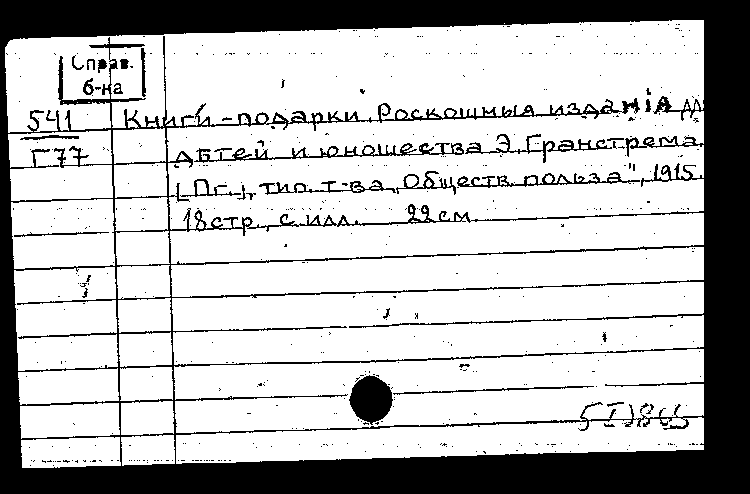 Справ.
б-на
541
Г77
Книги-подарки. Роскошныя изданія для
дѣтей и юношества Э. Гранстрема.
[Пг.], тип. т-ва „Обществ. польза", 1915.
18 стр., с илл. 22 см.